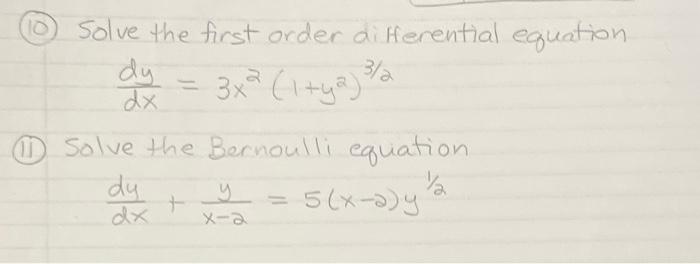 ⑩ Solve the first order differential equation
dy/dx = 3x² (1+y²)^3/2
⑪ Solve the Bernoulli equation
dy/dx + y/x-2 = 5(x-2)y^1/2